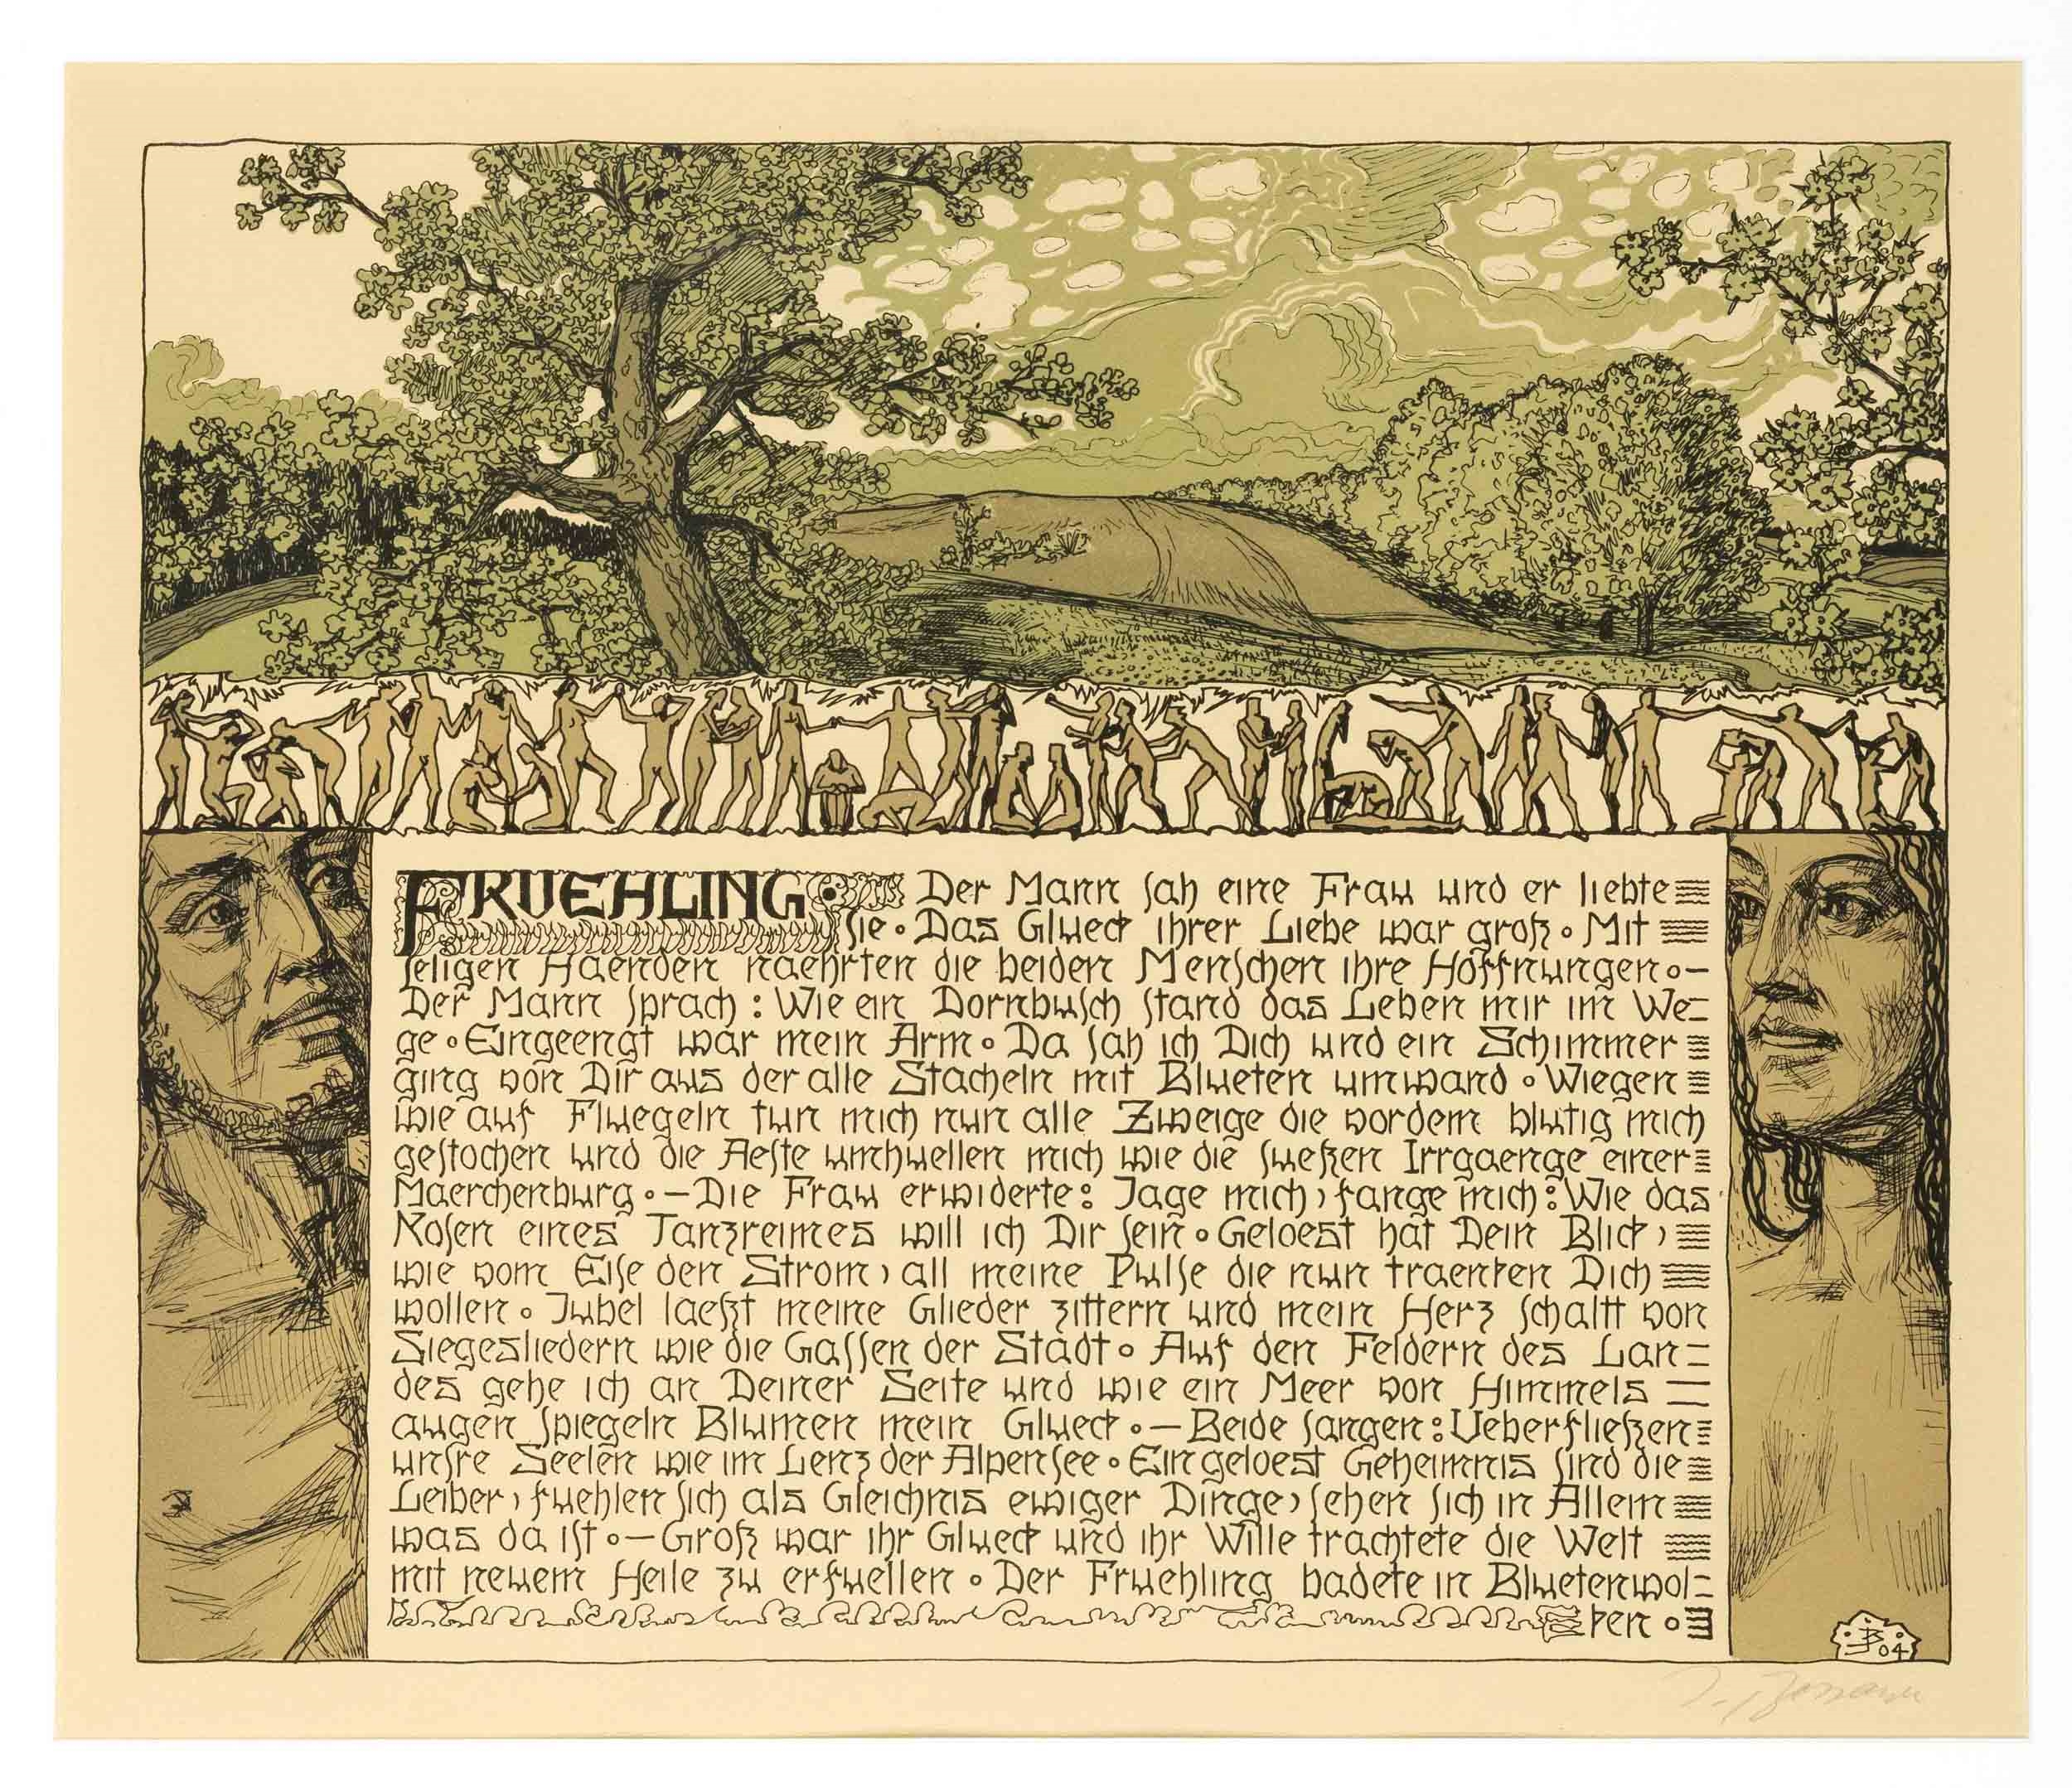 FRUEHLING Der Mann sah eine Frau und er liebte
sie · Das Glueck ihrer Liebe war groß · Mit
seligen Haenden naehrten die beiden Menschen ihre Hoffnungen · –
Der Mann sprach : Wie ein Dornbusch stand das Leben mir im We=
ge · Eingeengt war mein Arm · Da sah ich Dich und ein Schimmer
ging von Dir aus der alle Stacheln mit Blueten umwand · Wiegen
wie auf Fluegeln tun mich nun alle Zweige die vordem blutig mich
gestochen und die Aeste umhuellen mich wie die sueßen Irrgaenge einer
Maerchenburg · – Die Frau erwiderte : Jage mich, fange mich : Wie das
Kosen eines Tanzreimes will ich Dir sein · Geloest hat Dein Blick,
wie vom Eise den Strom, all meine Pulse die nun traenken Dich
wollen · Jubel laeßt meine Glieder zittern und mein Herz schallt von
Siegesliedern wie die Gassen der Stadt · Auf den Feldern des Lan=
des gehe ich an Deiner Seite und wie ein Meer von Himmels =
augen spiegeln Blumen mein Glueck · – Beide sangen : Ueberfließen
unsre Seelen wie im Lenz der Alpensee · Ein geloest Geheimnis sind die
Leiber, fuehlen sich als Gleichnis ewiger Dinge, sehen sich in Allem
was da ist · – Groß war ihr Glueck und ihr Wille trachtete die Welt
mit neuem Heile zu erfuellen · Der Fruehling badete in Bluetenwol=
ken ·
JB 04